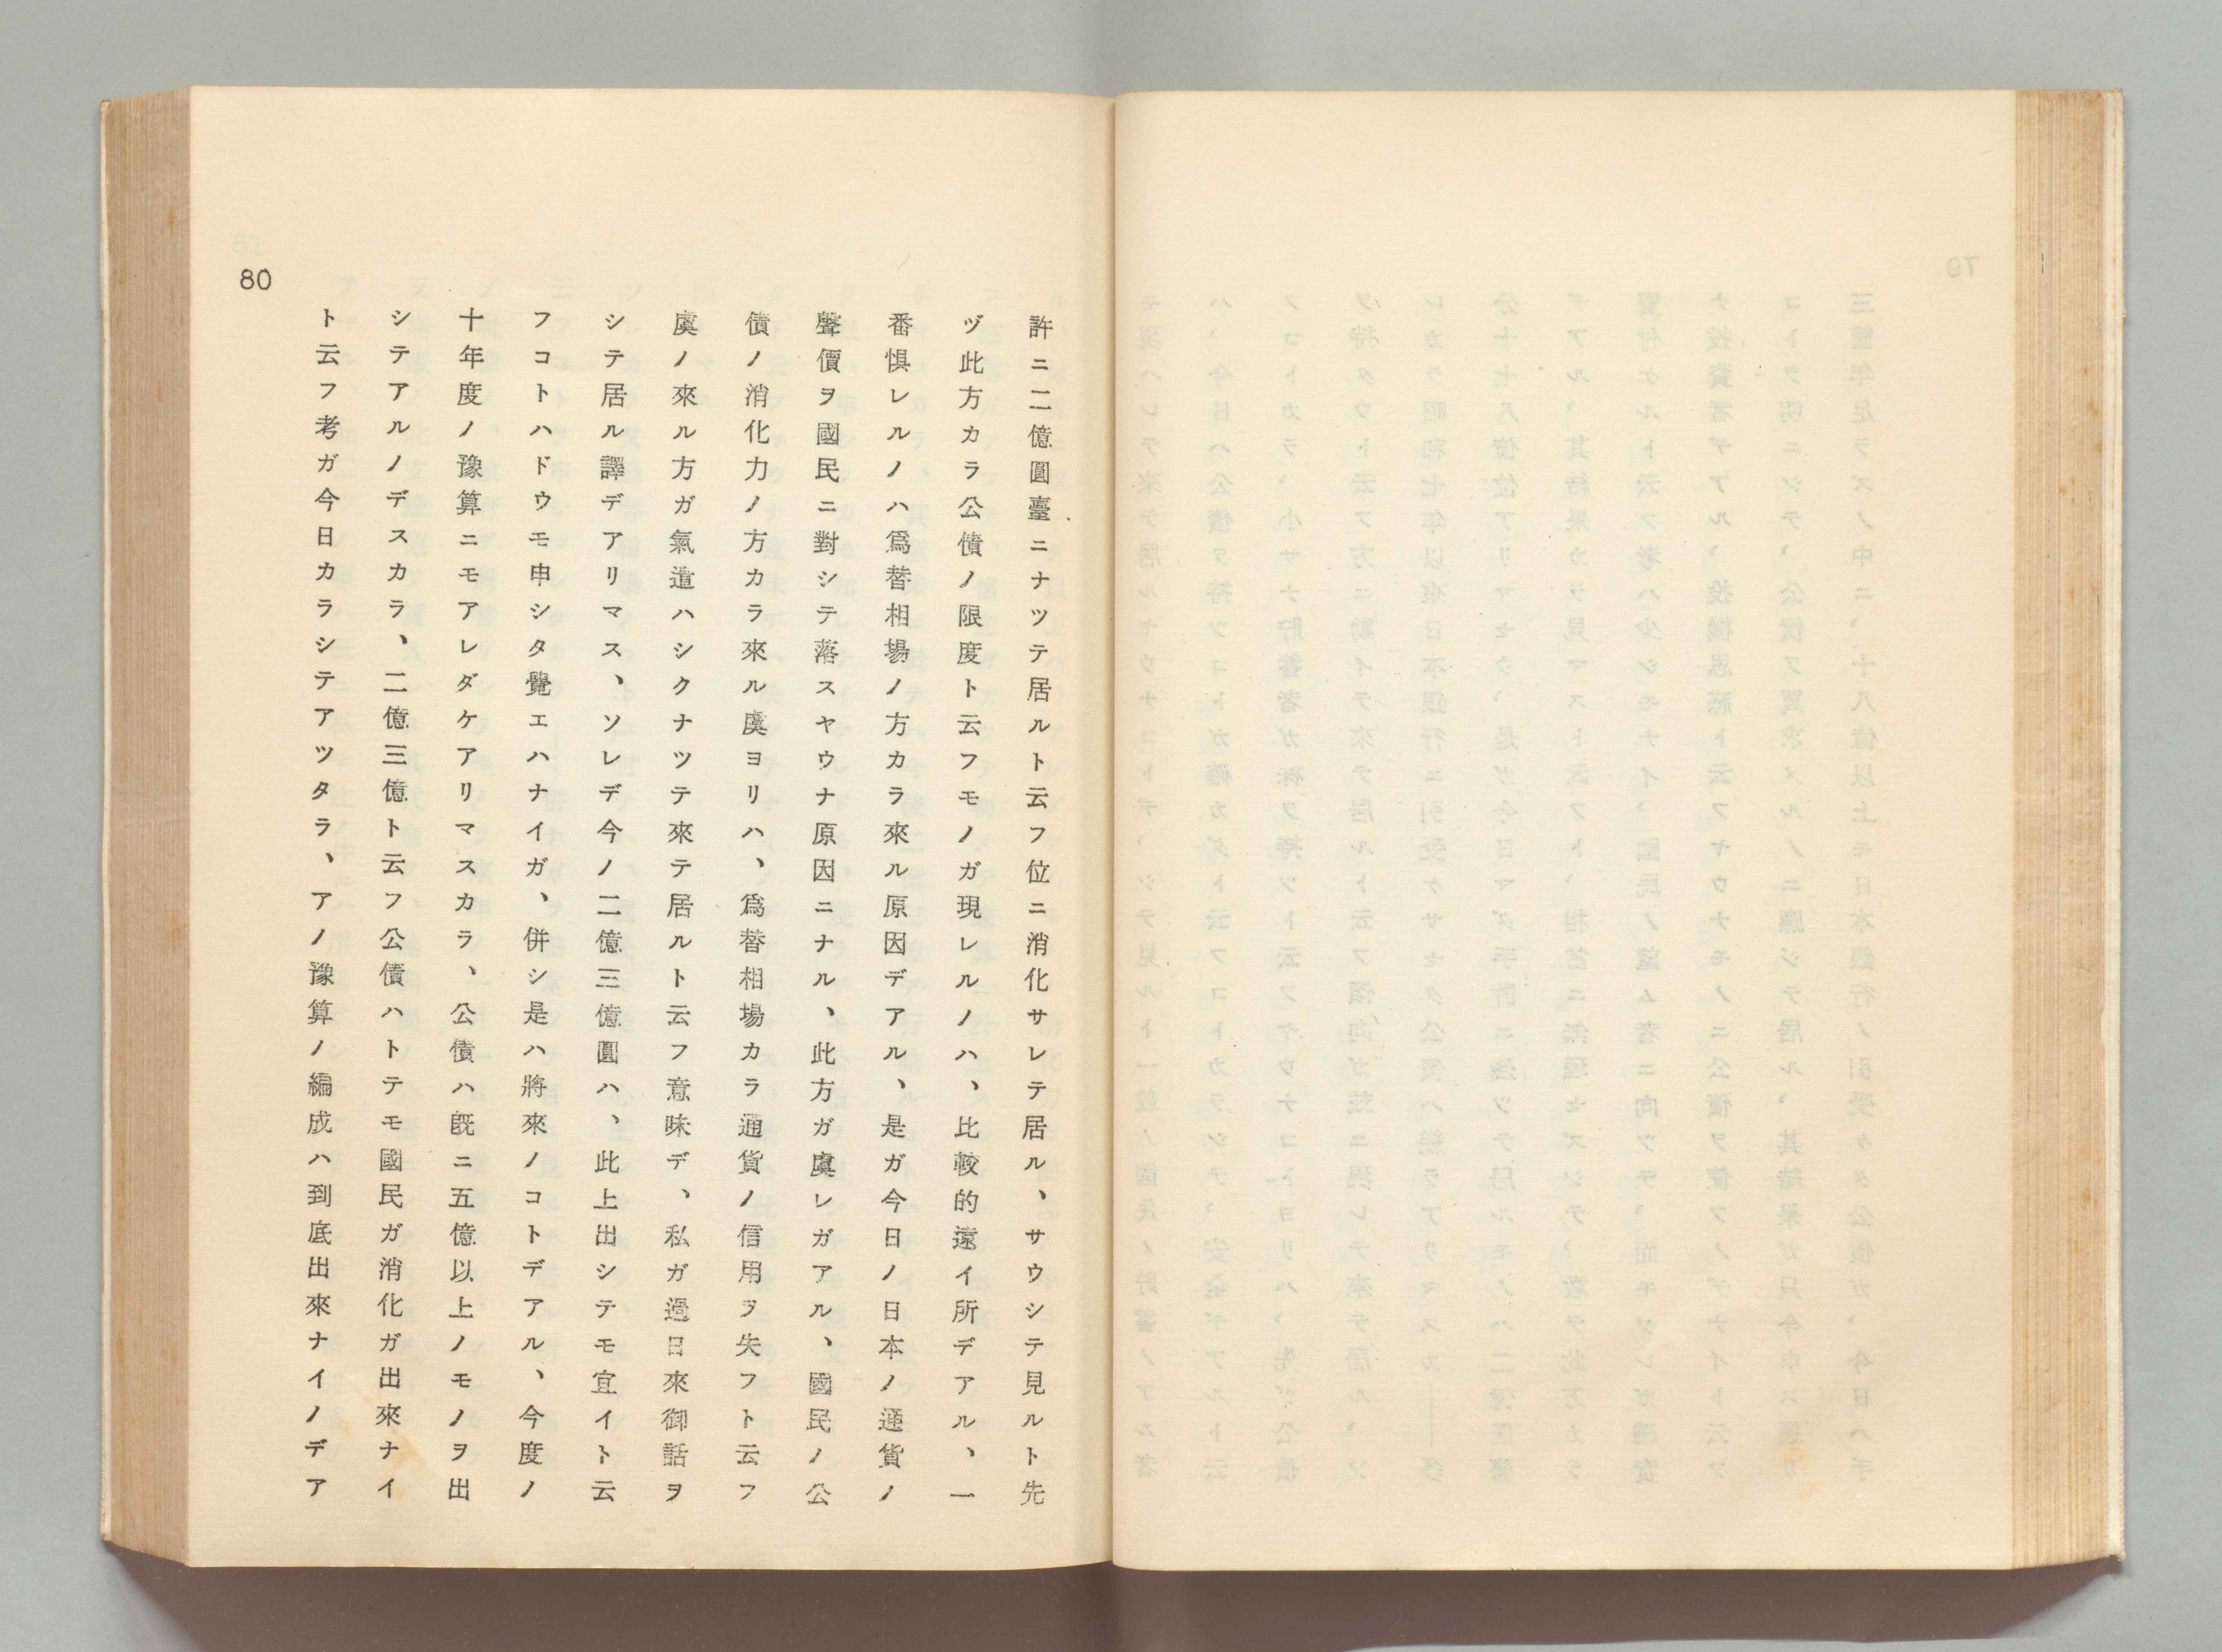 許ニ二億圓臺ニナツテ居ルト云フ位ニ消化サレテ居ル、サウシテ見ルト先
ヅ此方カラ公債ノ限度ト云フモノガ現レルノハ、比較的遠イ所デアル、一
番惧レルノハ爲替相場ノ方カラ來ル原因デアル、是ガ今日ノ日本ノ通貨ノ
聲價ヲ國民ニ對シテ落スヤウナ原因ニナル、此方ガ虞レガアル、國民ノ公
債ノ消化力ノ方カラ來ル虞ヨリハ、爲替相場カラ通貨ノ信用ヲ失フト云フ
虞ノ來ル方ガ氣遣ハシクナツテ來テ居ルト云フ意味デ、私ガ過日來御話ヲ
シテ居ル譯デアリマス、ソレデ今ノ二億三億圓ハ、此上出シテモ宜イト云
フコトハドウモ申シタ覺エハナイガ、併シ是ハ將來ノコトデアル、今度ノ
十年度ノ豫算ニモアレダケアリマスカラ、公債ハ既ニ五億以上ノモノヲ出
シテアルノデスカラ、二億三億ト云フ公債ハトテモ國民ガ消化ガ出來ナイ
ト云フ考ガ今日カラシテアツタラ、アノ豫算ノ編成ハ到底出來ナイノデア
80